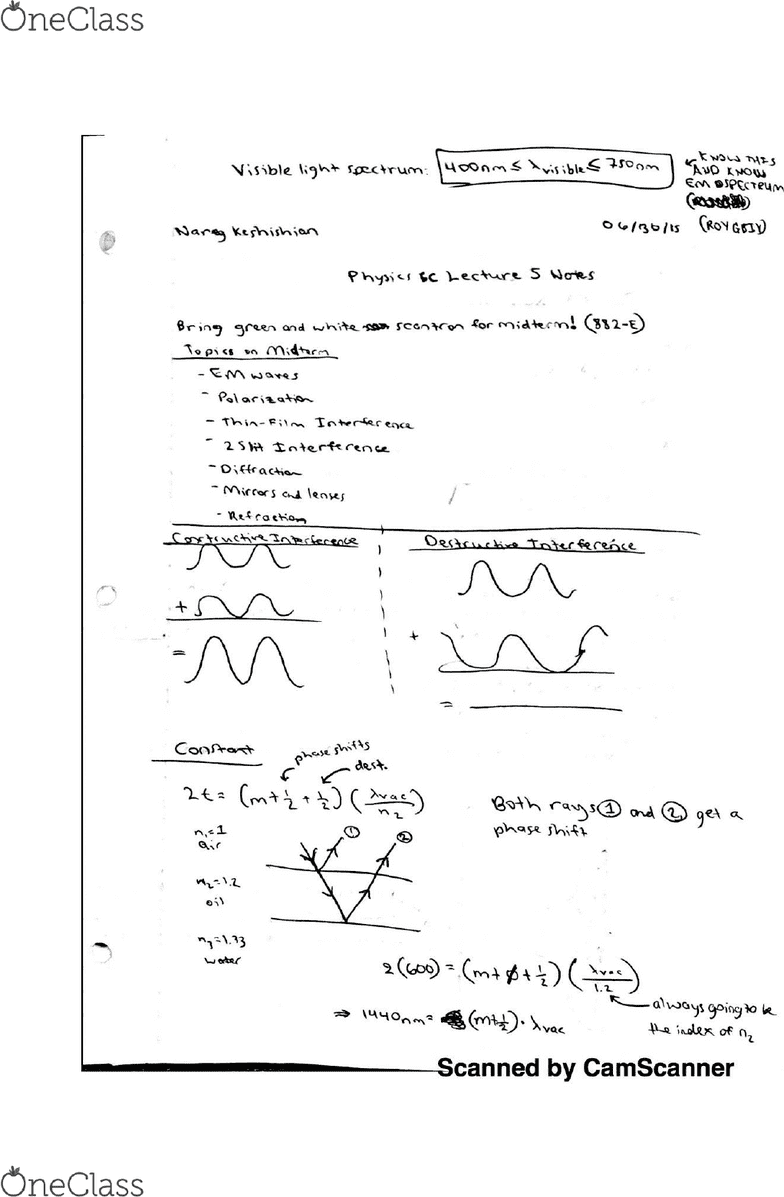 OneClass
Visible light spectrum: 400nm ≤ λvisible ≤ 750nm
KNOW THIS
AND KNOW
EM SPECTRUM
(ROYGBIV)
06/30/15
Nareg Keshishian
Physics 6C Lecture 5 Notes
Bring green and white scantron for midterm! (882-E)
Topics on Midterm
- EM waves
- Polarization
- Thin-Film Interference
- 2 Slit Interference
- Diffraction
- Mirrors and lenses
- Refraction
Constructive Interference
Destructive Interference
+
=
+
=
Constant
phase shifts
dest.
2t = (m + 1/2 + 1/2) (λvac/n2)
Both rays ① and ② get a
phase shift
n1=1
air
① ②
n2=1.2
oil
n3=1.33
water
2(600) = (m + 0 + 1/2) (λvac/1.2)
always going to be
the index of n2
⇒ 1440nm = (m+1/2) · λvac
Scanned by CamScanner
OneClass